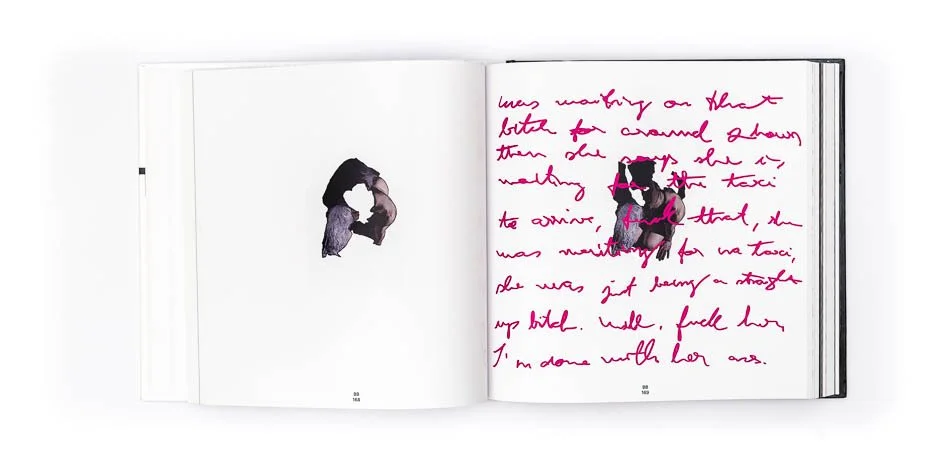 was waiting on that
bitch for around 2 hours
then she says she is
waiting for the taxi
to arrive, fuck that, she
was waiting for no taxi,
she was just being a straight
up bitch. Well, fuck her,
I'm done with her ass.
88
168
88
169